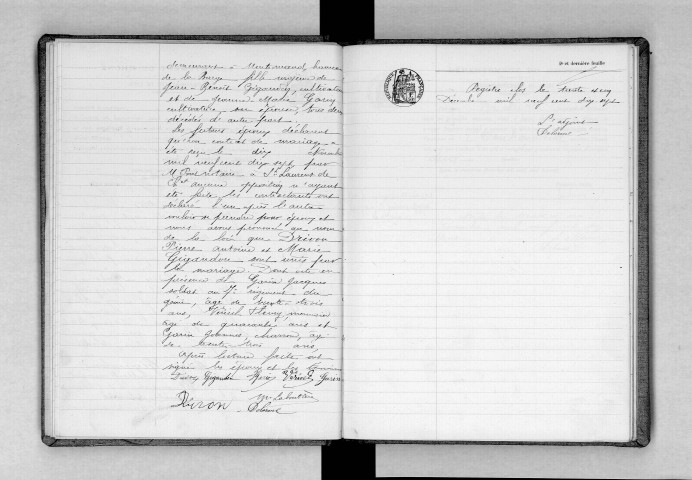 demeurant à Montromand, hameau
de la Burge fille majeure de
Jean-Benoît Gigandon, cultivateur
et de femme Marie Garin
cultivatrice son épouse, tous deux
décédés d'autre part.
Les futurs époux déclarent
qu'un contrat de mariage a
été reçu le dix
mil neuf cent dix sept, par
M notaire à St Laurent de
Ch opposition n'ayant
été faite les contractants ont
déclaré l'un après l'autre
vouloir se prendre pour époux et
nous avons prononcé au nom
de la loi que Drévon
Pierre Antoine et Marie
Gigandon sont unis par
le mariage. Dont acte en
présence de Garin Jacques
soldat au 7e régiment du
génie, âgé de trente-trois
ans, Fleury,
âgé de quarante ans et
Garin Johannès, charron, âgé
de trente trois ans,
Après lecture faite ont
signé les époux et les témoins
Drévon Gigandon Garin
5e et dernière feuille
Registre clos le trente et un
Décembre mil neuf cent dix sept
L'adjoint